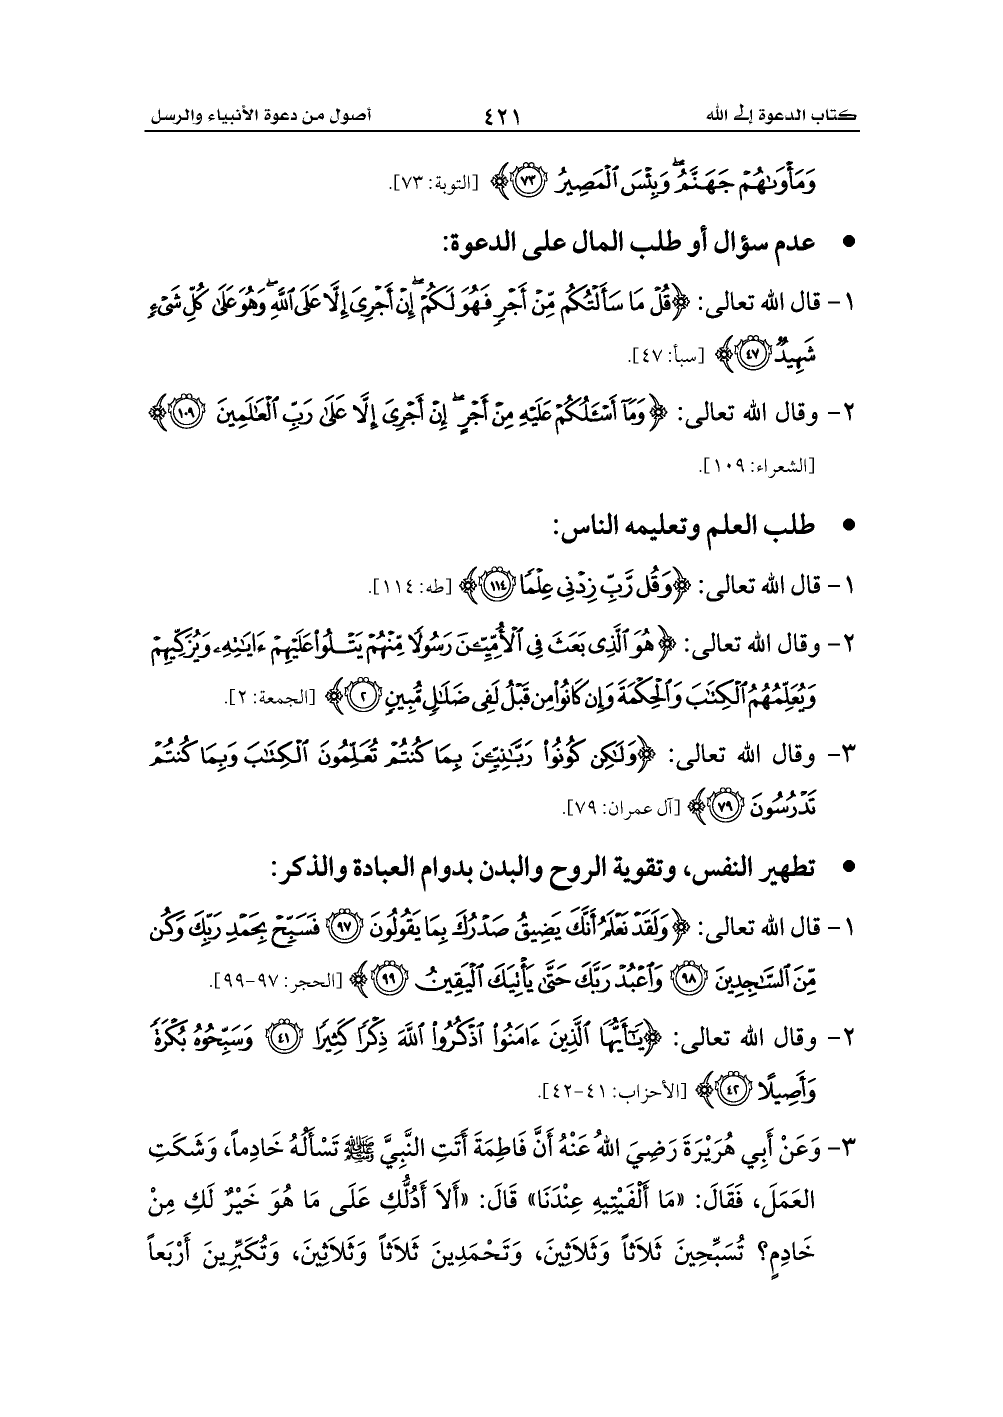 كتاب الدعوة إلى الله ٤٢١ أصول من دعوة الأنبياء والرسل
وَمَأْوَىٰهُمْ جَهَنَّمُ ۖ وَبِئْسَ ٱلْمَصِيرُ ﴿٧٣﴾ [التوبة: ٧٣].
• عدم سؤال أو طلب المال على الدعوة:
١- قال الله تعالى: ﴿قُلْ مَا سَأَلْتُكُم مِّنْ أَجْرٍ فَهُوَ لَكُمْ ۖ إِنْ أَجْرِىَ إِلَّا عَلَى ٱللَّهِ ۖ وَهُوَ عَلَىٰ كُلِّ شَىْءٍ
شَهِيدٌ ﴿٤٧﴾ [سبأ: ٤٧].
٢- وقال الله تعالى: ﴿وَمَآ أَسْـَٔلُكُمْ عَلَيْهِ مِنْ أَجْرٍ ۖ إِنْ أَجْرِىَ إِلَّا عَلَىٰ رَبِّ ٱلْعَـٰلَمِينَ ﴿١٠٩﴾
[الشعراء: ١٠٩].
• طلب العلم وتعليمه الناس:
١- قال الله تعالى: ﴿وَقُل رَّبِّ زِدْنِى عِلْمًا ﴿١١٤﴾ [طه: ١١٤].
٢- وقال الله تعالى: ﴿هُوَ ٱلَّذِى بَعَثَ فِى ٱلْأُمِّيِّـۧنَ رَسُولًا مِّنْهُمْ يَتْلُوا۟ عَلَيْهِمْ ءَايَـٰتِهِۦ وَيُزَكِّيهِمْ
وَيُعَلِّمُهُمُ ٱلْكِتَـٰبَ وَٱلْحِكْمَةَ وَإِن كَانُوا۟ مِن قَبْلُ لَفِى ضَلَـٰلٍ مُّبِينٍ ﴿٢﴾ [الجمعة: ٢].
٣- وقال الله تعالى: ﴿وَلَـٰكِن كُونُوا۟ رَبَّـٰنِيِّـۧنَ بِمَا كُنتُمْ تُعَلِّمُونَ ٱلْكِتَـٰبَ وَبِمَا كُنتُمْ
تَدْرُسُونَ ﴿٧٩﴾ [آل عمران: ٧٩].
• تطهير النفس، وتقوية الروح والبدن بدوام العبادة والذكر:
١- قال الله تعالى: ﴿وَلَقَدْ نَعْلَمُ أَنَّكَ يَضِيقُ صَدْرُكَ بِمَا يَقُولُونَ ﴿٩٧﴾ فَسَبِّحْ بِحَمْدِ رَبِّكَ وَكُن
مِّنَ ٱلسَّـٰجِدِينَ ﴿٩٨﴾ وَٱعْبُدْ رَبَّكَ حَتَّىٰ يَأْتِيَكَ ٱلْيَقِينُ ﴿٩٩﴾ [الحجر: ٩٧-٩٩].
٢- وقال الله تعالى: ﴿يَـٰٓأَيُّهَا ٱلَّذِينَ ءَامَنُوا۟ ٱذْكُرُوا۟ ٱللَّهَ ذِكْرًا كَثِيرًا ﴿٤١﴾ وَسَبِّحُوهُ بُكْرَةً
وَأَصِيلًا ﴿٤٢﴾ [الأحزاب: ٤١-٤٢].
٣- وَعَنْ أَبِي هُرَيْرَةَ رَضِيَ اللهُ عَنْهُ أَنَّ فَاطِمَةَ أَتَتِ النَّبِيَّ ﷺ تَسْأَلُهُ خَادِماً، وَشَكَتِ
العَمَلَ، فَقَالَ: «مَا أَلْفَيْتِيهِ عِنْدَنَا» قَالَ: «أَلاَ أَدُلُّكِ عَلَى مَا هُوَ خَيْرٌ لَكِ مِنْ
خَادِمٍ؟ تُسَبِّحِينَ ثَلاَثاً وَثَلاَثِينَ، وَتَحْمَدِينَ ثَلاَثاً وَثَلاَثِينَ، وَتُكَبِّرِينَ أَرْبَعاً